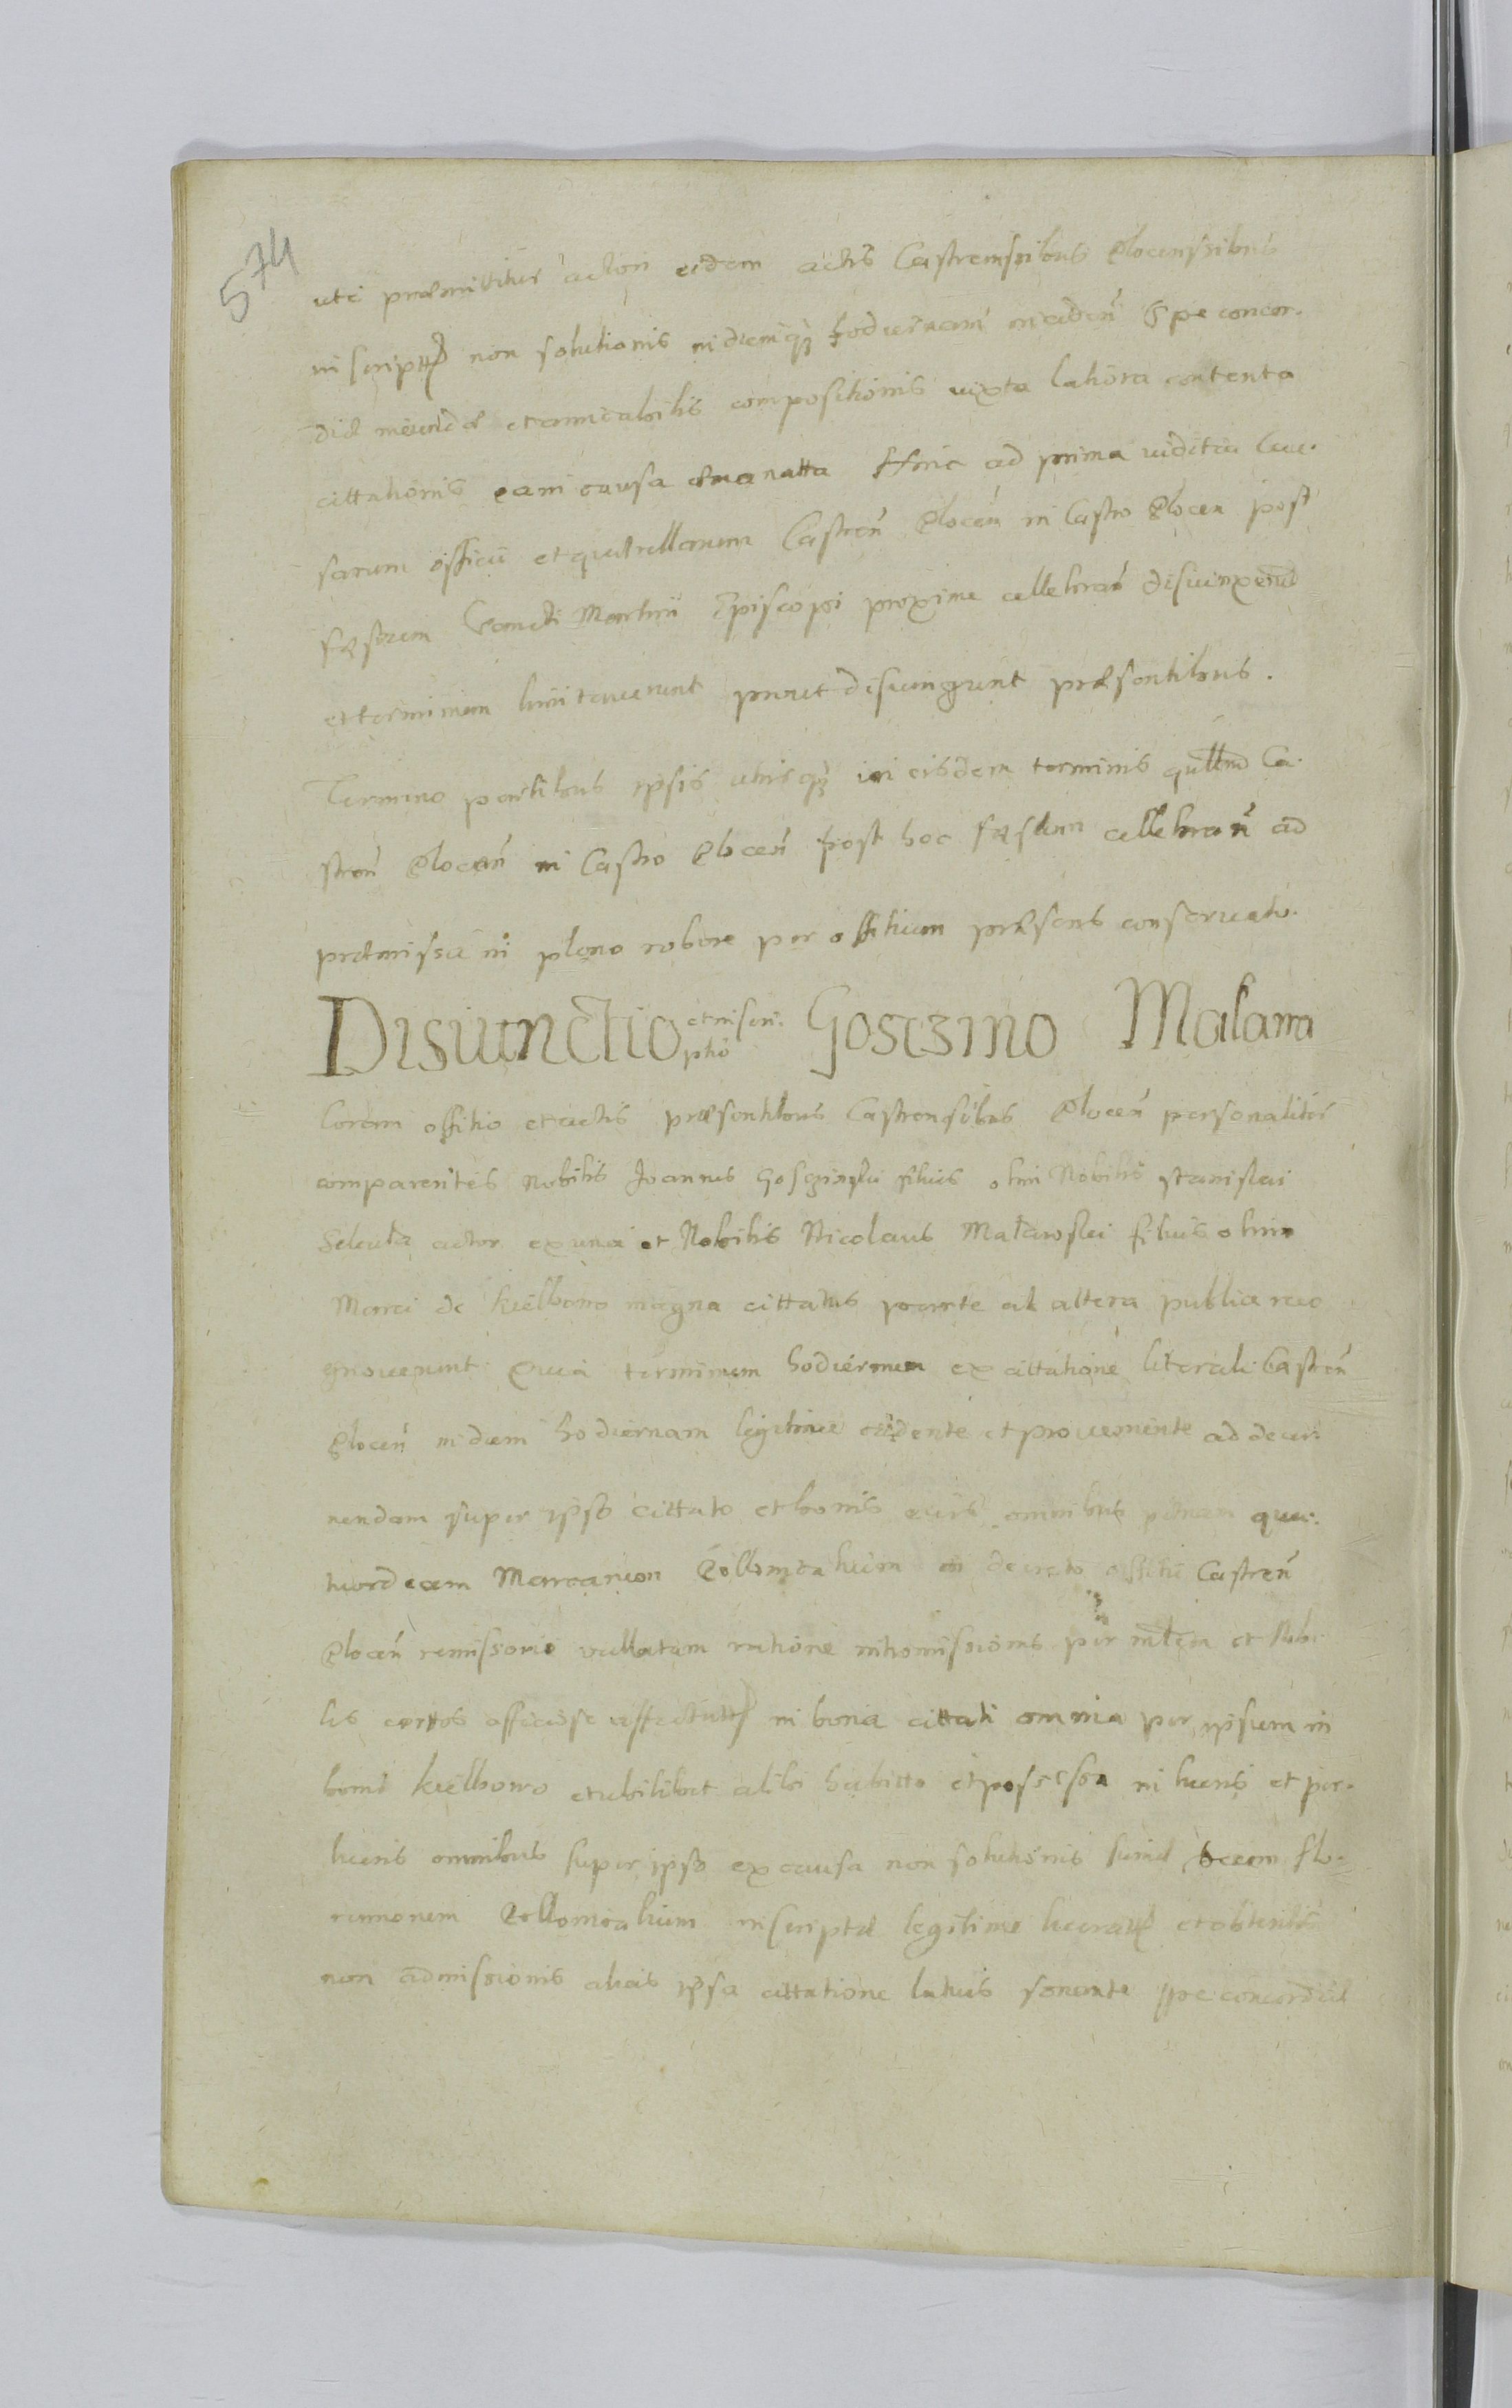 574
uti præmittitur actori eidem actis Castrenssibus Plocenssibus
inscriptæ non solutionis in diemq hodiernam incaden Spe concor.
diæ ineundæ et amicabilis compositionis iuxta latiora contenta
cittationis ea in causa emanatta Hinc ad prima iuditia Cau.
sarum officii et quærellarum Castren Plocen in Castro Plocen post
fæstum Sancti Martini Episcopi proxime cellebran disiunxerunt
et terminum limitaverunt prout disiungunt præsentibus.
Termino partibus ipsis utrisq in eisdem terminis quællarum Ca.
stren Plocen in Castro Plocen post hoc fæstum cellebran ad
præmissa in pleno robore per offitium præsens conservato.
Disiunctio et inscri. ptio Gosczino Malawa
Coram offitio et actis præsentibus Castrensibus Plocen personaliter
comparentes Nobilis Joannes Gosczinski filius olim Nobilis Stanislai
actor ex una et Nobilis Nicolaus Malawski filius olim
Marci de Kielbowo magna cittatus parte ab altera publice reco
gnoverunt Quia terminum hodiernum ex cittatione literali Castren
Plocen in diem hodiernam legitime cadente et proveniente ad decer.
nendam super ipso cittato et bonis eius omnibus pænam qua.
tuordecem Marcarum Pollonicalium in decreto offitii Castren
Plocen remissorio vallatam ratione intromissionis per mtem et Nobi
les certos officiose in bona cittati omnia per ipsum in
bonis Kielbowo et ubilibet alibi habitta et possessa in hæreis et per.
omnibus super ipso ex causa non solutionis summæ decem flo.
renorum Pollonicalium inscriptæ legitime lucratæ et obtentæ
non admissionis alias ipsa cittatione latius sonante spe concordiæ